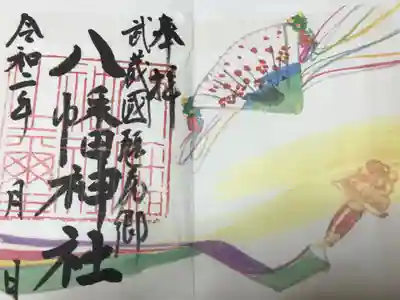 奉拝
武蔵國鶴尾郷
八幡神社
令和二年 月 日